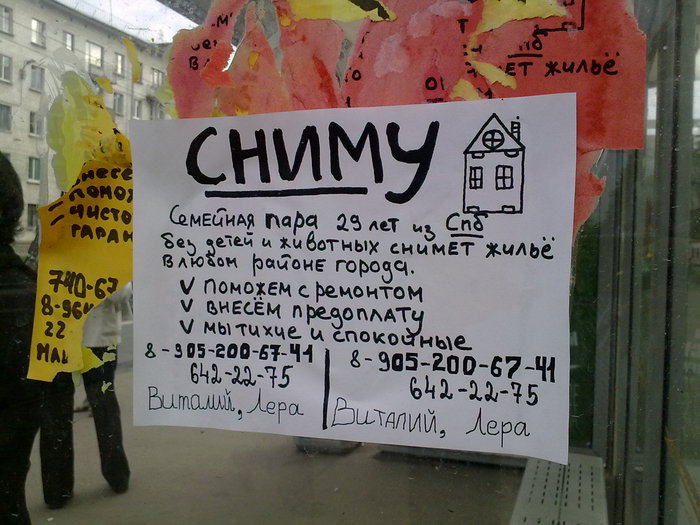 ЕТ ЖИЛЬЁ
СНИМУ
Семейная пара 29 лет из Спб
без детей и животных снимет жильё
в любом районе города.
V поможем с ремонтом
V внесём предоплату
V мы тихие и спокойные
8-905-200-67-41
642-22-75
Виталий, Лера
8-905-200-67-41
642-22-75
Виталий, Лера
внесё
помож
чисто
гаран
740-67
8-964
22